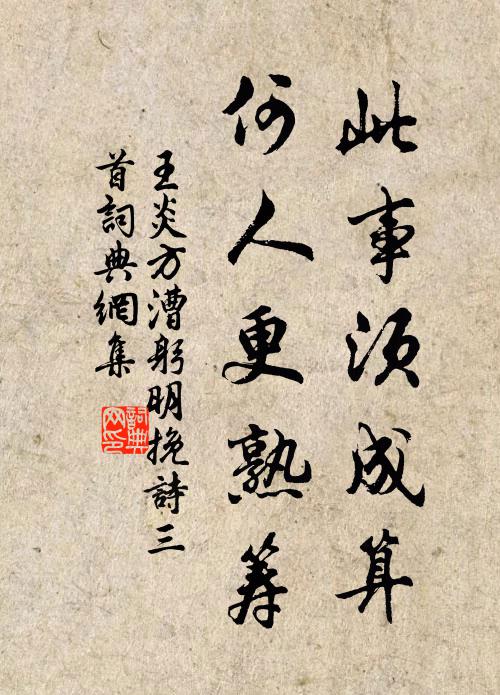 此事須成算
何人更熟筹
王炎方漕躬明挽詩三
首詞典網集
詞典网印